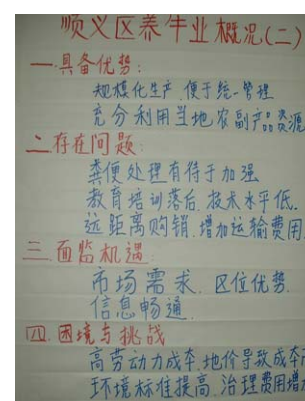 顺义区养牛业概况(二)
一.具备优势:
规模化生产.便于统一管理
充分利用当地农副产品资源
二.存在问题:
粪便处理有待于加强
教育培训落后.技术水平低.
远距离购销.增加运输费用
三.面临机遇
市场需求.区位优势.
信息畅通.
四.困境与挑战
高劳动力成本.地价导致成本
环境标准提高.治理费用增